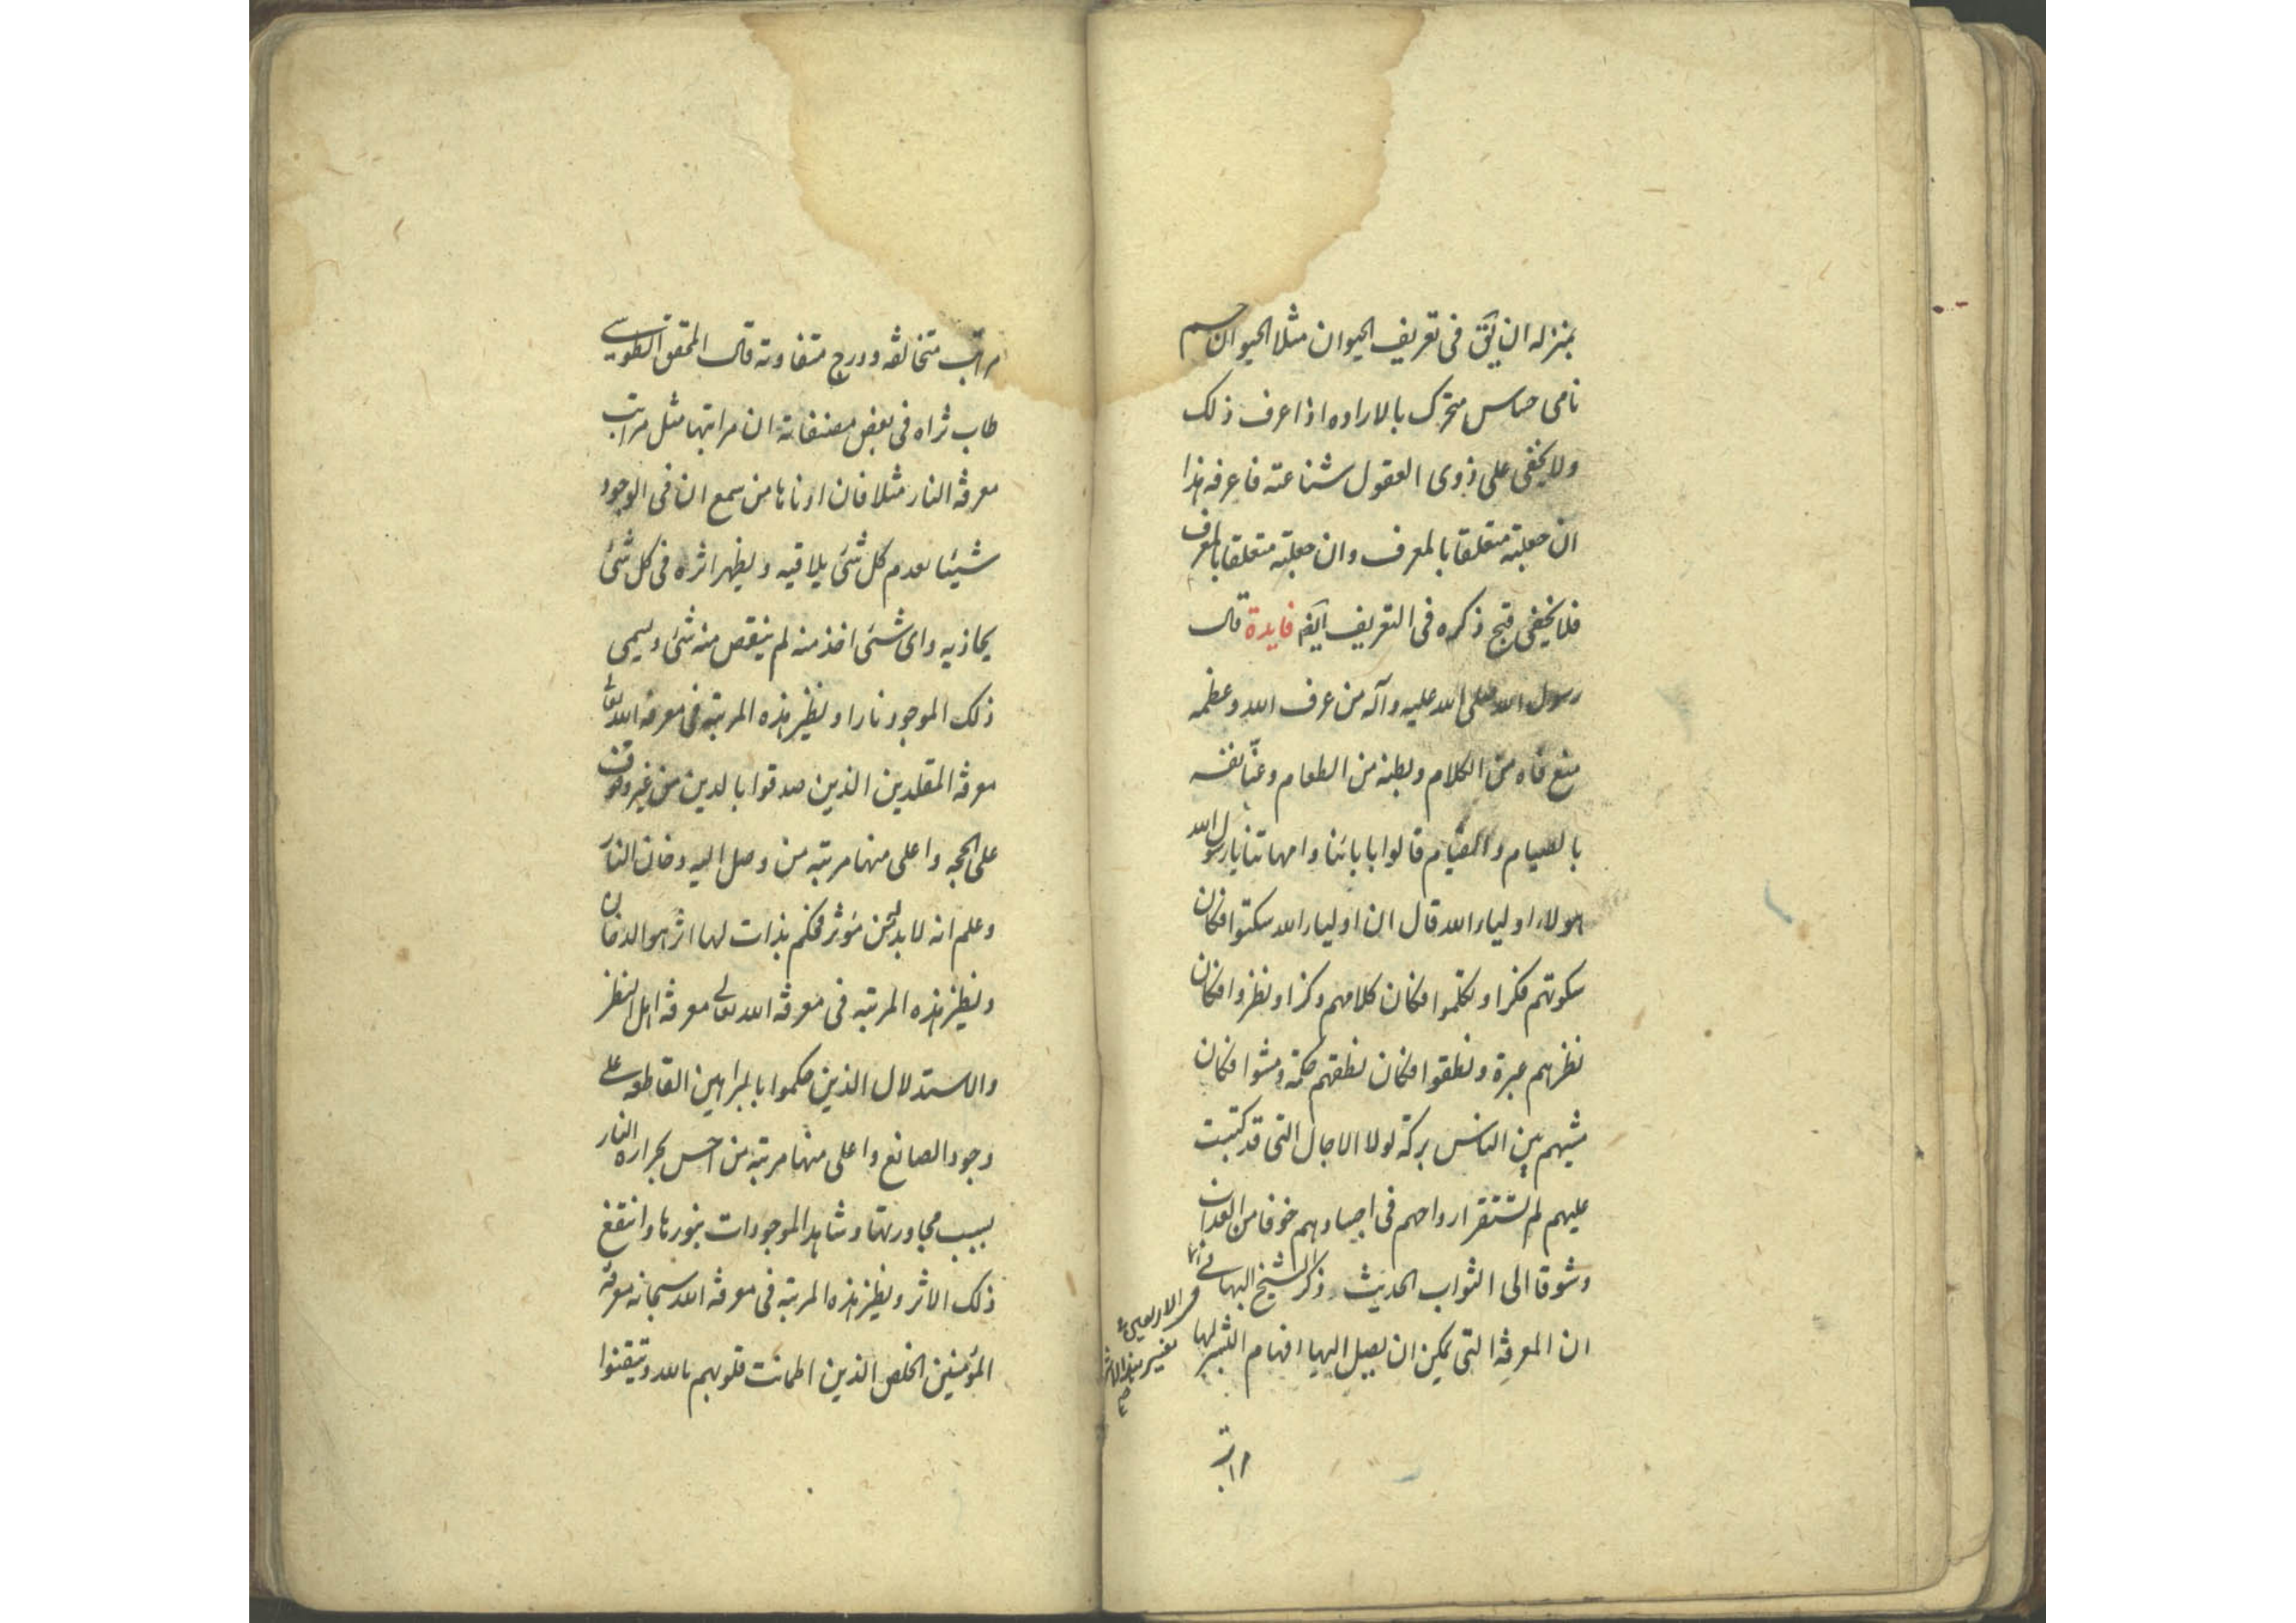 بمنزله ان يق فى تعريف الحيوان مثلا الحيوان جسم
نامى حساس متحرك بالاراده اذا عرف ذلك
ولا يخفى على ذوى العقول شناعته فاعرفه هذا
ان جعلته متعلقا بالمعرف وان جعلته متعلقا بالمعرف
فلا يخفى قبح ذكره فى التعريف ايضا فايدة قال
رسول الله صلى الله عليه وآله من عرف الله وعظمه
منع فاه من الكلام وبطنه من الطعام وعنّا نفسه
بالصيام والقيام قالوا بابائنا وامهاتنا يا رسول الله
هولاء اولياء الله قال ان اولياء الله سكتوا فكان
سكوتهم فكرا وتكلموا فكان كلامهم ذكرا ونظروا فكان
نظرهم عبرة ونطقوا فكان نطقهم حكمة ومشوا فكان
مشيهم بين الناس بركة لولا الاجال التى قد كتبت
عليهم لم تستقر ارواحهم فى اجسادهم خوفا من العذاب
وشوقا الى الثواب الحديث وذكر الشيخ البهائى
فى الاربعين
تفسير هذا
ان المعرفة التى يمكن ان يصل اليها افهام البشر لها
مراتب
مراتب متخالفه ودرج متفاوته قال المحقق الطوسى
طاب ثراه فى بعض مصنفاته ان مراتبها مثل مراتب
معرفة النار مثلا فان ادناها من سمع ان فى الوجود
شيئا يعدم كل شئ يلاقيه ويظهر اثره فى كل شئ
يحاذيه واى شئ اخذ منه لم ينقص منه شئ ويسمى
ذلك الموجود نارا ونظير هذه المرتبه فى معرفة الله تعالى
معرفة المقلدين الذين صدقوا بالدين من غير وقوف
على الحجه واعلى منها مرتبه من وصل اليه دخان النار
وعلم انه لا بد من مؤثر فحكم بذات لها اثر هو الدخان
ونظير هذه المرتبه فى معرفة الله تعالى معرفة اهل النظر
والاستدلال الذين حكموا بالبراهين القاطعه على
وجود الصانع واعلى منها مرتبه من احس بحراره النار
بسبب مجاورتها وشاهد الموجودات بنورها وانتفع
ذلك الاثر ونظير هذه المرتبه فى معرفة الله سبحانه معرفة
المؤمنين الخلص الذين اطمانت قلوبهم بالله وتيقنوا